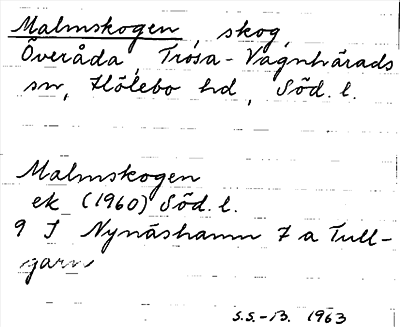 Malmskogen, skog,
Överåda, Trosa-Vagnhärads
sn, Hölebo hd, Söd. l.
Malmskogen
ek (1960) Söd. l.
9 I Nynäshamn 7 a Tull-
garn
S.S.-B. 1963